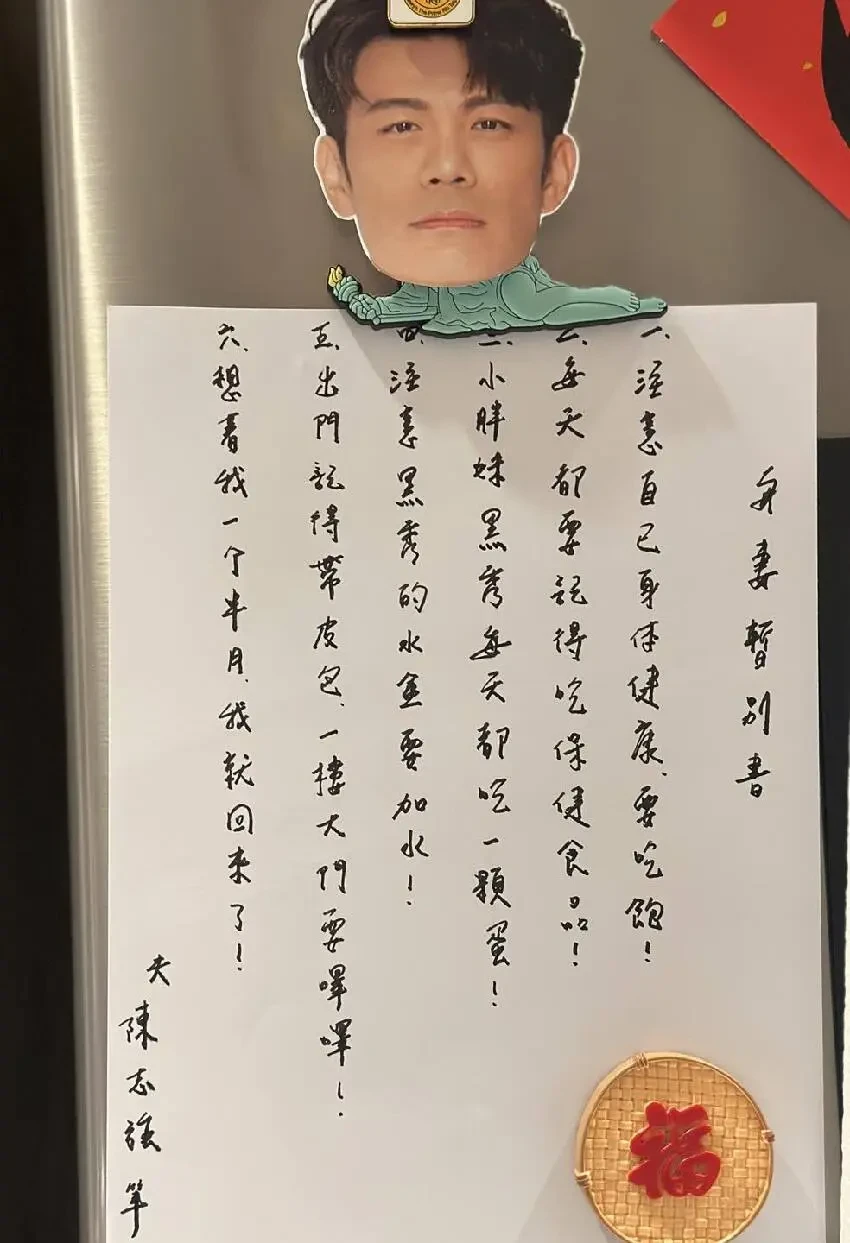 與妻暫別書
一、注意自己身体健康、要吃飽！
二、每天都要記得吃保健食品！
三、小胖妹黑秀每天都吃一顆蛋！
四、注意黑秀的水盒要加水！
五、出門記得帶皮包、一樓大門要嗶嗶！
六、想著我一个半月、我就回來了！
夫
陳志強筆
福